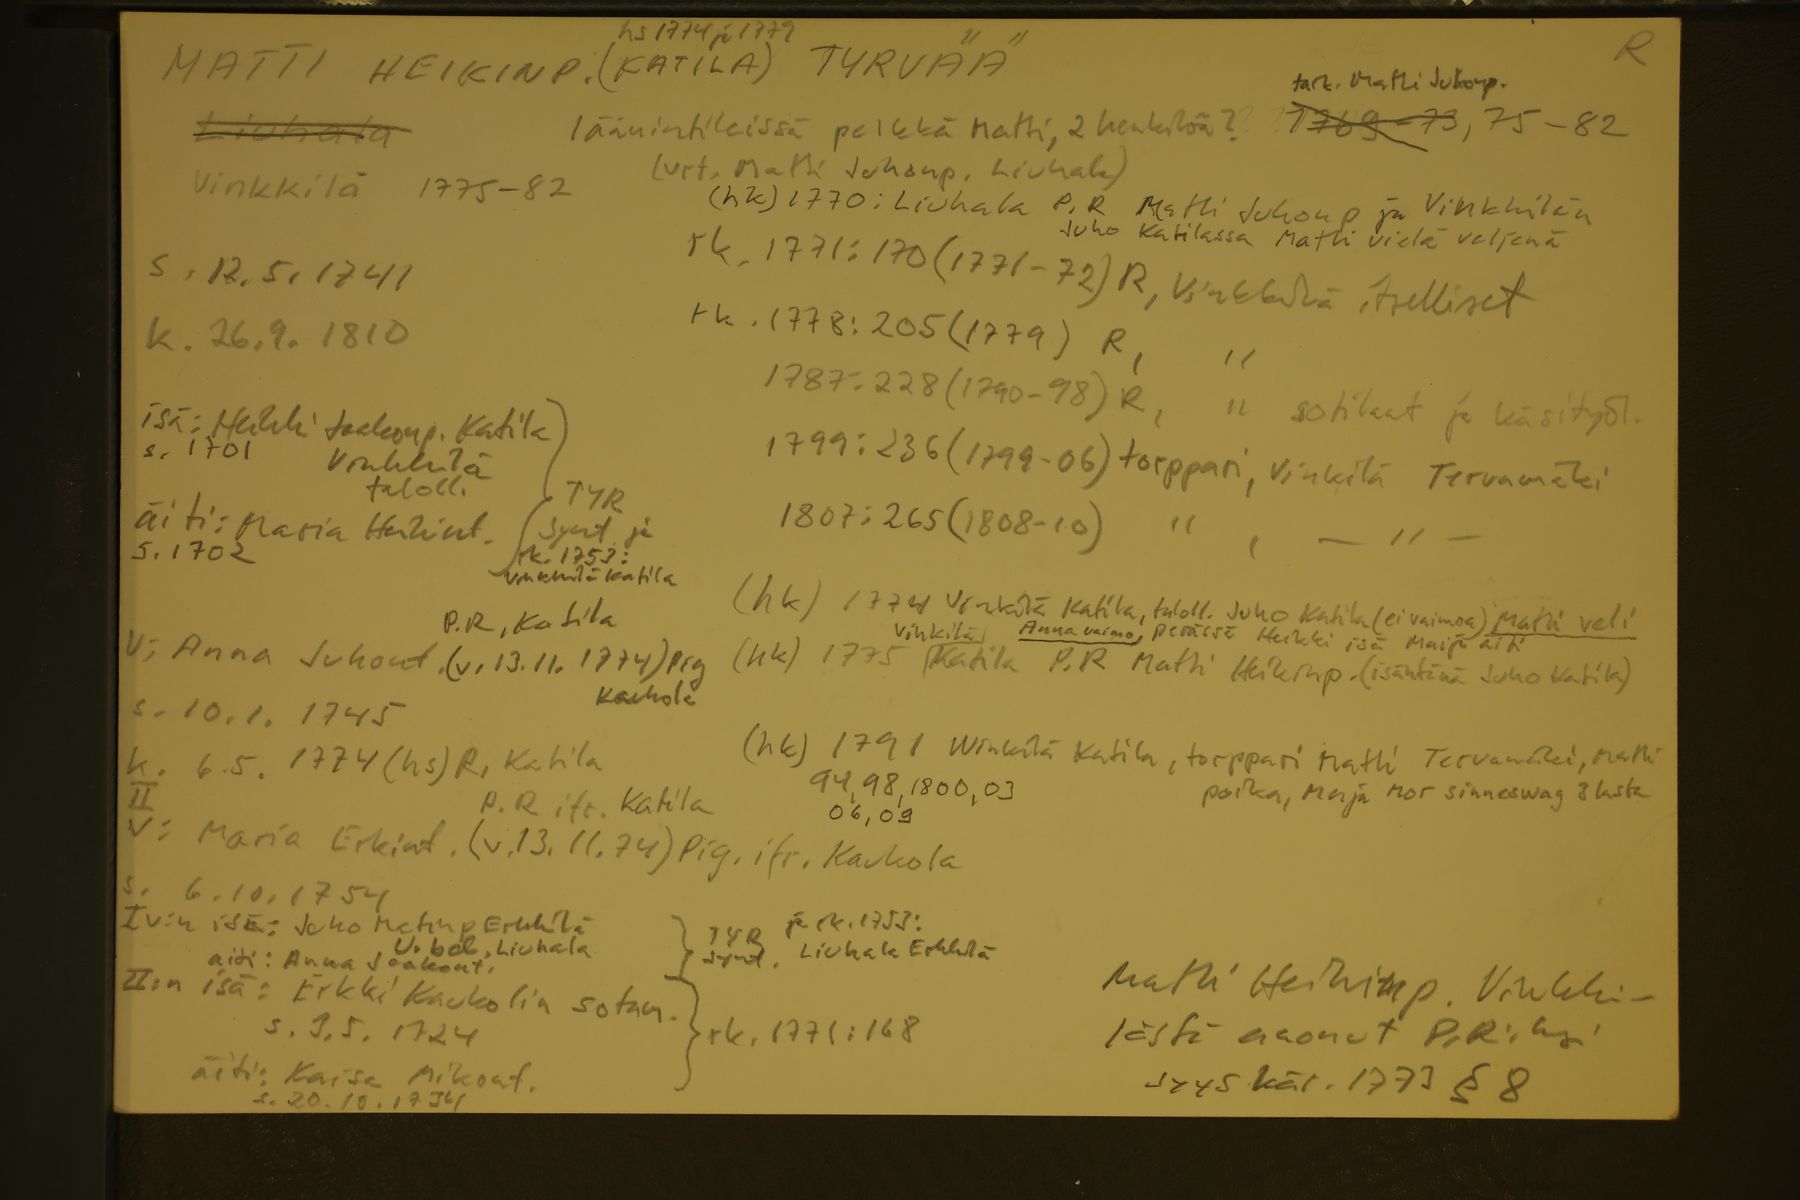 hs 1774 ja 1779
MATTI HEIKINP. (KATILA) TYRVÄÄ
R
tark. Matti Juhonp.
Liuhala läänintileissä pelkkä Matti, 2 henkilöä? 1769-73, 75-82
(vrt. Matti Juhonp. Liuhala)
Vinkkilä 1775-82
(hk) 1770: Liuhala P.R Matti Juhonp ja Vinkkilän
Juho Katilassa Matti vielä veljenä
s. 12.5.1741
rk. 1771: 170 (1771-72) R, Vinkkilä itselliset
k. 26.9. 1810
rk. 1778: 205 (1779) R, "
1787: 228 (1790-98) R, " sotilaat ja käsityöl.
isä: Heikki Jaakonp. Katila
s. 1701 Vinkkilä
taloll.
1799: 236 (1799-06) torppari, Vinkilä Tervamäki
äiti: Maria Heikint.
s. 1702
TYR
synt ja
rk. 1753:
Vinkkilä Katila
1807: 265 (1808-10) " , — " —
(hk) 1774 Vinkilä Katila, taloll. Juho Katila (ei vaimoa) Matti veli
Anna vaimo, perässä Heikki isä Maija äiti
P.R, Katila
V: Anna Juhont. (v. 13.11. 1774) Pig
Kaukola
Vinkilä
(hk) 1775 Katila P.R Matti Heikinp. (isäntänä Juho Katila)
s. 10.1. 1745
k. 6.5. 1774 (hs) R, Katila
(hk) 1791 Winkilä Katila, torppari Matti Tervamäki, Matti
poika, Merja Mor sinnesswag 3 lasta
94, 98, 1800, 03
06, 09
II P.R ifr. Katila
V: Maria Erkint. (v. 13.11.74) Pig. ifr. Kaukola
s. 6.10.1754
I v:n isä: Juho Matinp Erkkilä
Liuhala
äiti: Anna Jaakont.
TYR
synt.
ja rk. 1753:
Liuhala Erkkilä
II:n isä: Erkki Kaukolin sotam.
s. 3.5. 1724
äiti: Kaisa Mikont.
s. 20.10.1734
rk. 1771: 168
Matti Heikinp. Vinkki-
lästä eronnut P.R:ksi
syyskär. 1773 § 8